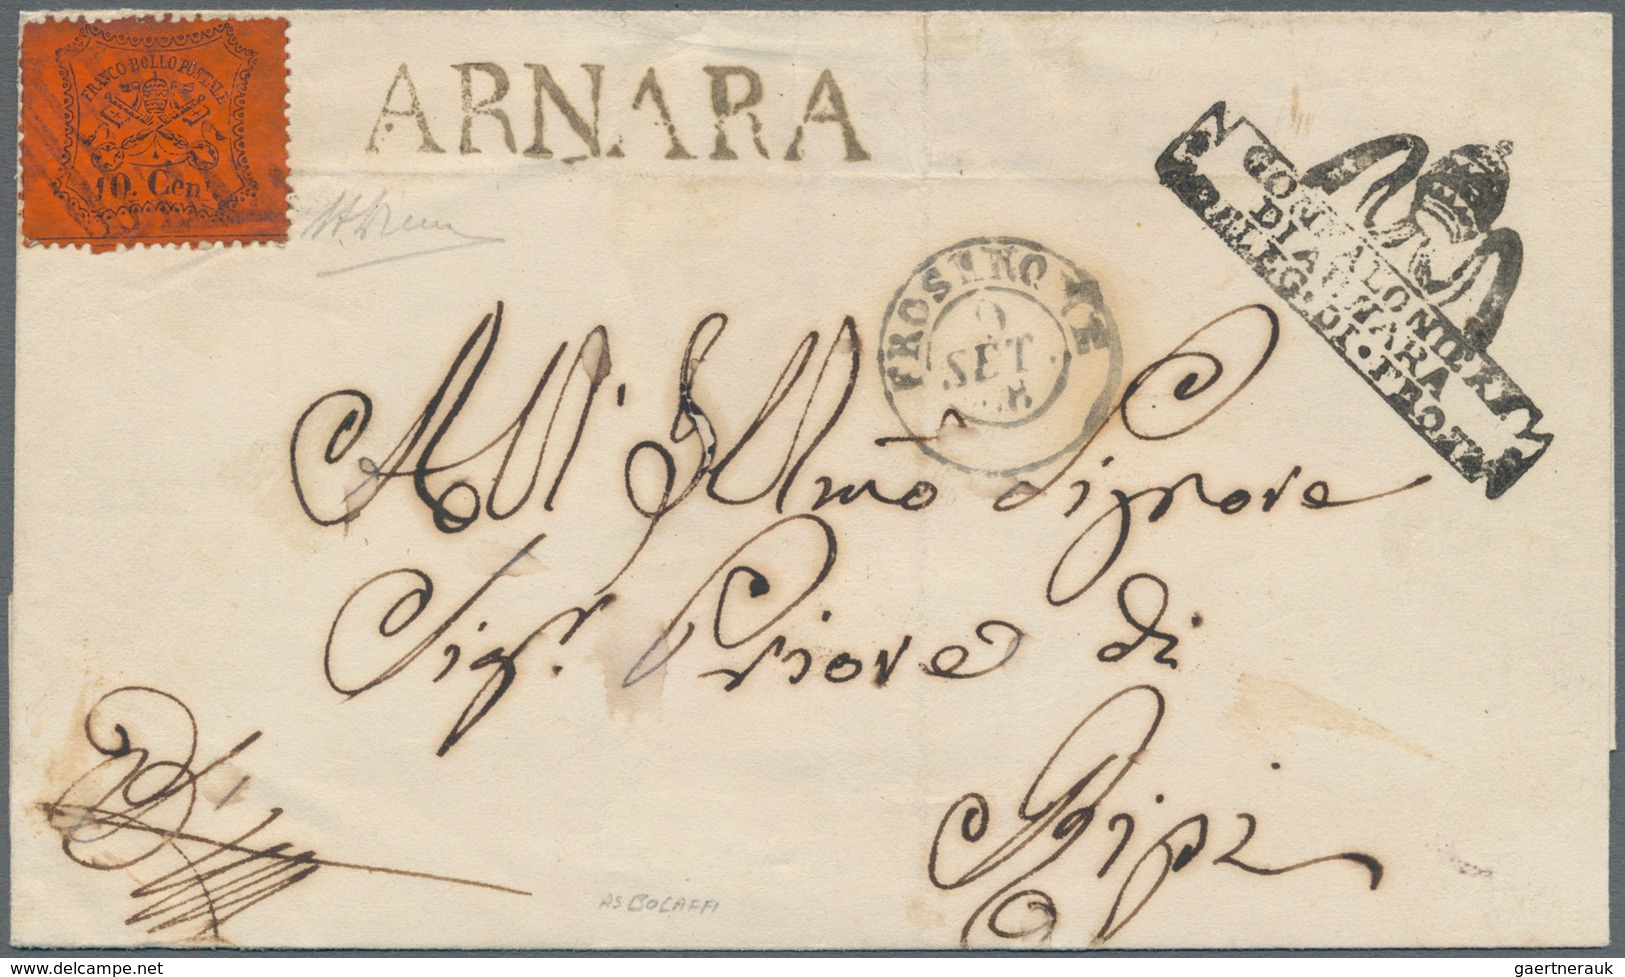 FRANCO BOLLO POSTALE
10. Cent
ARNARA
GONFALONIERE
DI ARNARA
DELEG. DI. FROSI
FROSINONE
SET
All' Illmo Signore
Sigr. Priore di
Ripi
AS BOLAFFI
© delcampe.net
gaertnerauk